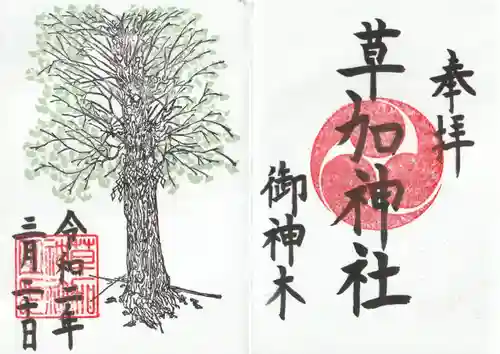 奉拝
草加神社
御神木
令和二年
三月二十日